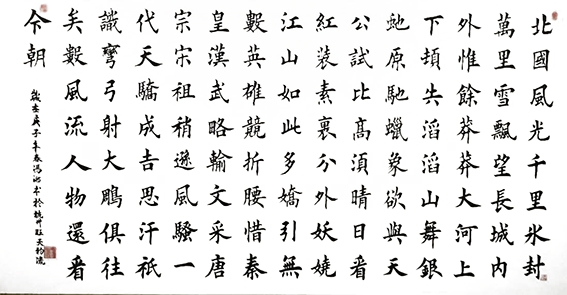 北國風光千里氷封
萬里雪飄望長城內
外惟餘莽莽大河上
下頓失滔滔山舞銀
虵原馳蠟象欲與天
公試比髙須晴日看
紅装素裹分外妖嬈
江山如此多嬌引無
數英雄競折腰惜秦
皇漢武略輸文采唐
宗宋祖稍遜風騷一
代天驕成吉思汗祇
識彎弓射大鵰俱往
矣數風流人物還看
今朝
歲在庚子年春馮書於